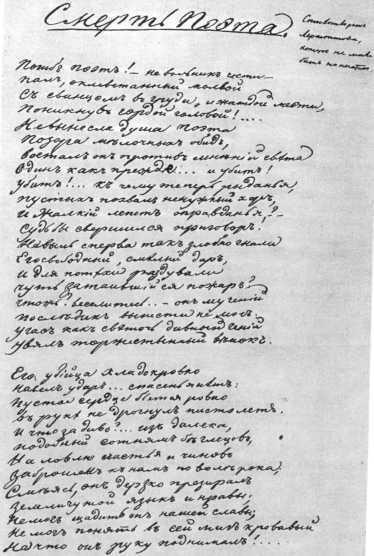 Смерть Поэта.
Стихотворение
Лермонтова,
которое не мог
быть напечат
Погибъ поэтъ! — невольникъ чести —
палъ, оклеветанный молвой
Съ свинцомъ въ груди, и жаждой мести,
Поникнувъ гордой головой!....
Невынесла душа поэта
Позора мѣлочныхъ обидъ,
Возсталъ онъ противъ мнѣній свѣта
Одинъ какъ прежде... и убитъ!
Убитъ!... къ чему теперь рыданья,
пустыхъ похвалъ ненужный хоръ,
И жалкій лепетъ оправданья? —
Судьбы свершился приговоръ!
Не вы ль сперва такъ злобно гнали
Его свободный, смѣлый даръ,
И для потѣхи раздували
Чуть затаившійся пожаръ?
Чтожъ? веселитесь.. — онъ мученій
послѣднихъ вынести не могъ:
Угасъ какъ свѣточь дивный геній
Увялъ торжественный вѣнокъ.
Его убійца хладнокровно
Навелъ ударъ... спасенья нѣтъ:
Пустое сердце бьется ровно
въ рукѣ не дрогнулъ пистолетъ.
И что за диво?... изъ далека,
подобный сотнямъ бѣглецовъ,
На ловлю счастья и чиновъ
Заброшенъ къ намъ по волѣ рока,
Смѣясь, онъ дерзко презиралъ
Земли чужой языкъ и нравы;
Не могъ щадить онъ нашей славы;
Не могъ понять въ сей мигъ кровавый
На что онъ руку поднималъ!...